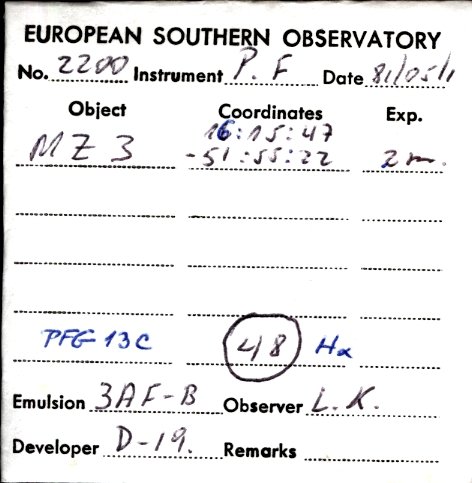 EUROPEAN SOUTHERN OBSERVATORY
No. 2200 Instrument P. F Date 81/05/1
Object Coordinates Exp.
16:15:47
MZ 3 -51:55:22 2m.
PFG 13C 48 Hα
Emulsion 3AF-B Observer L.K.
Developer D-19. Remarks